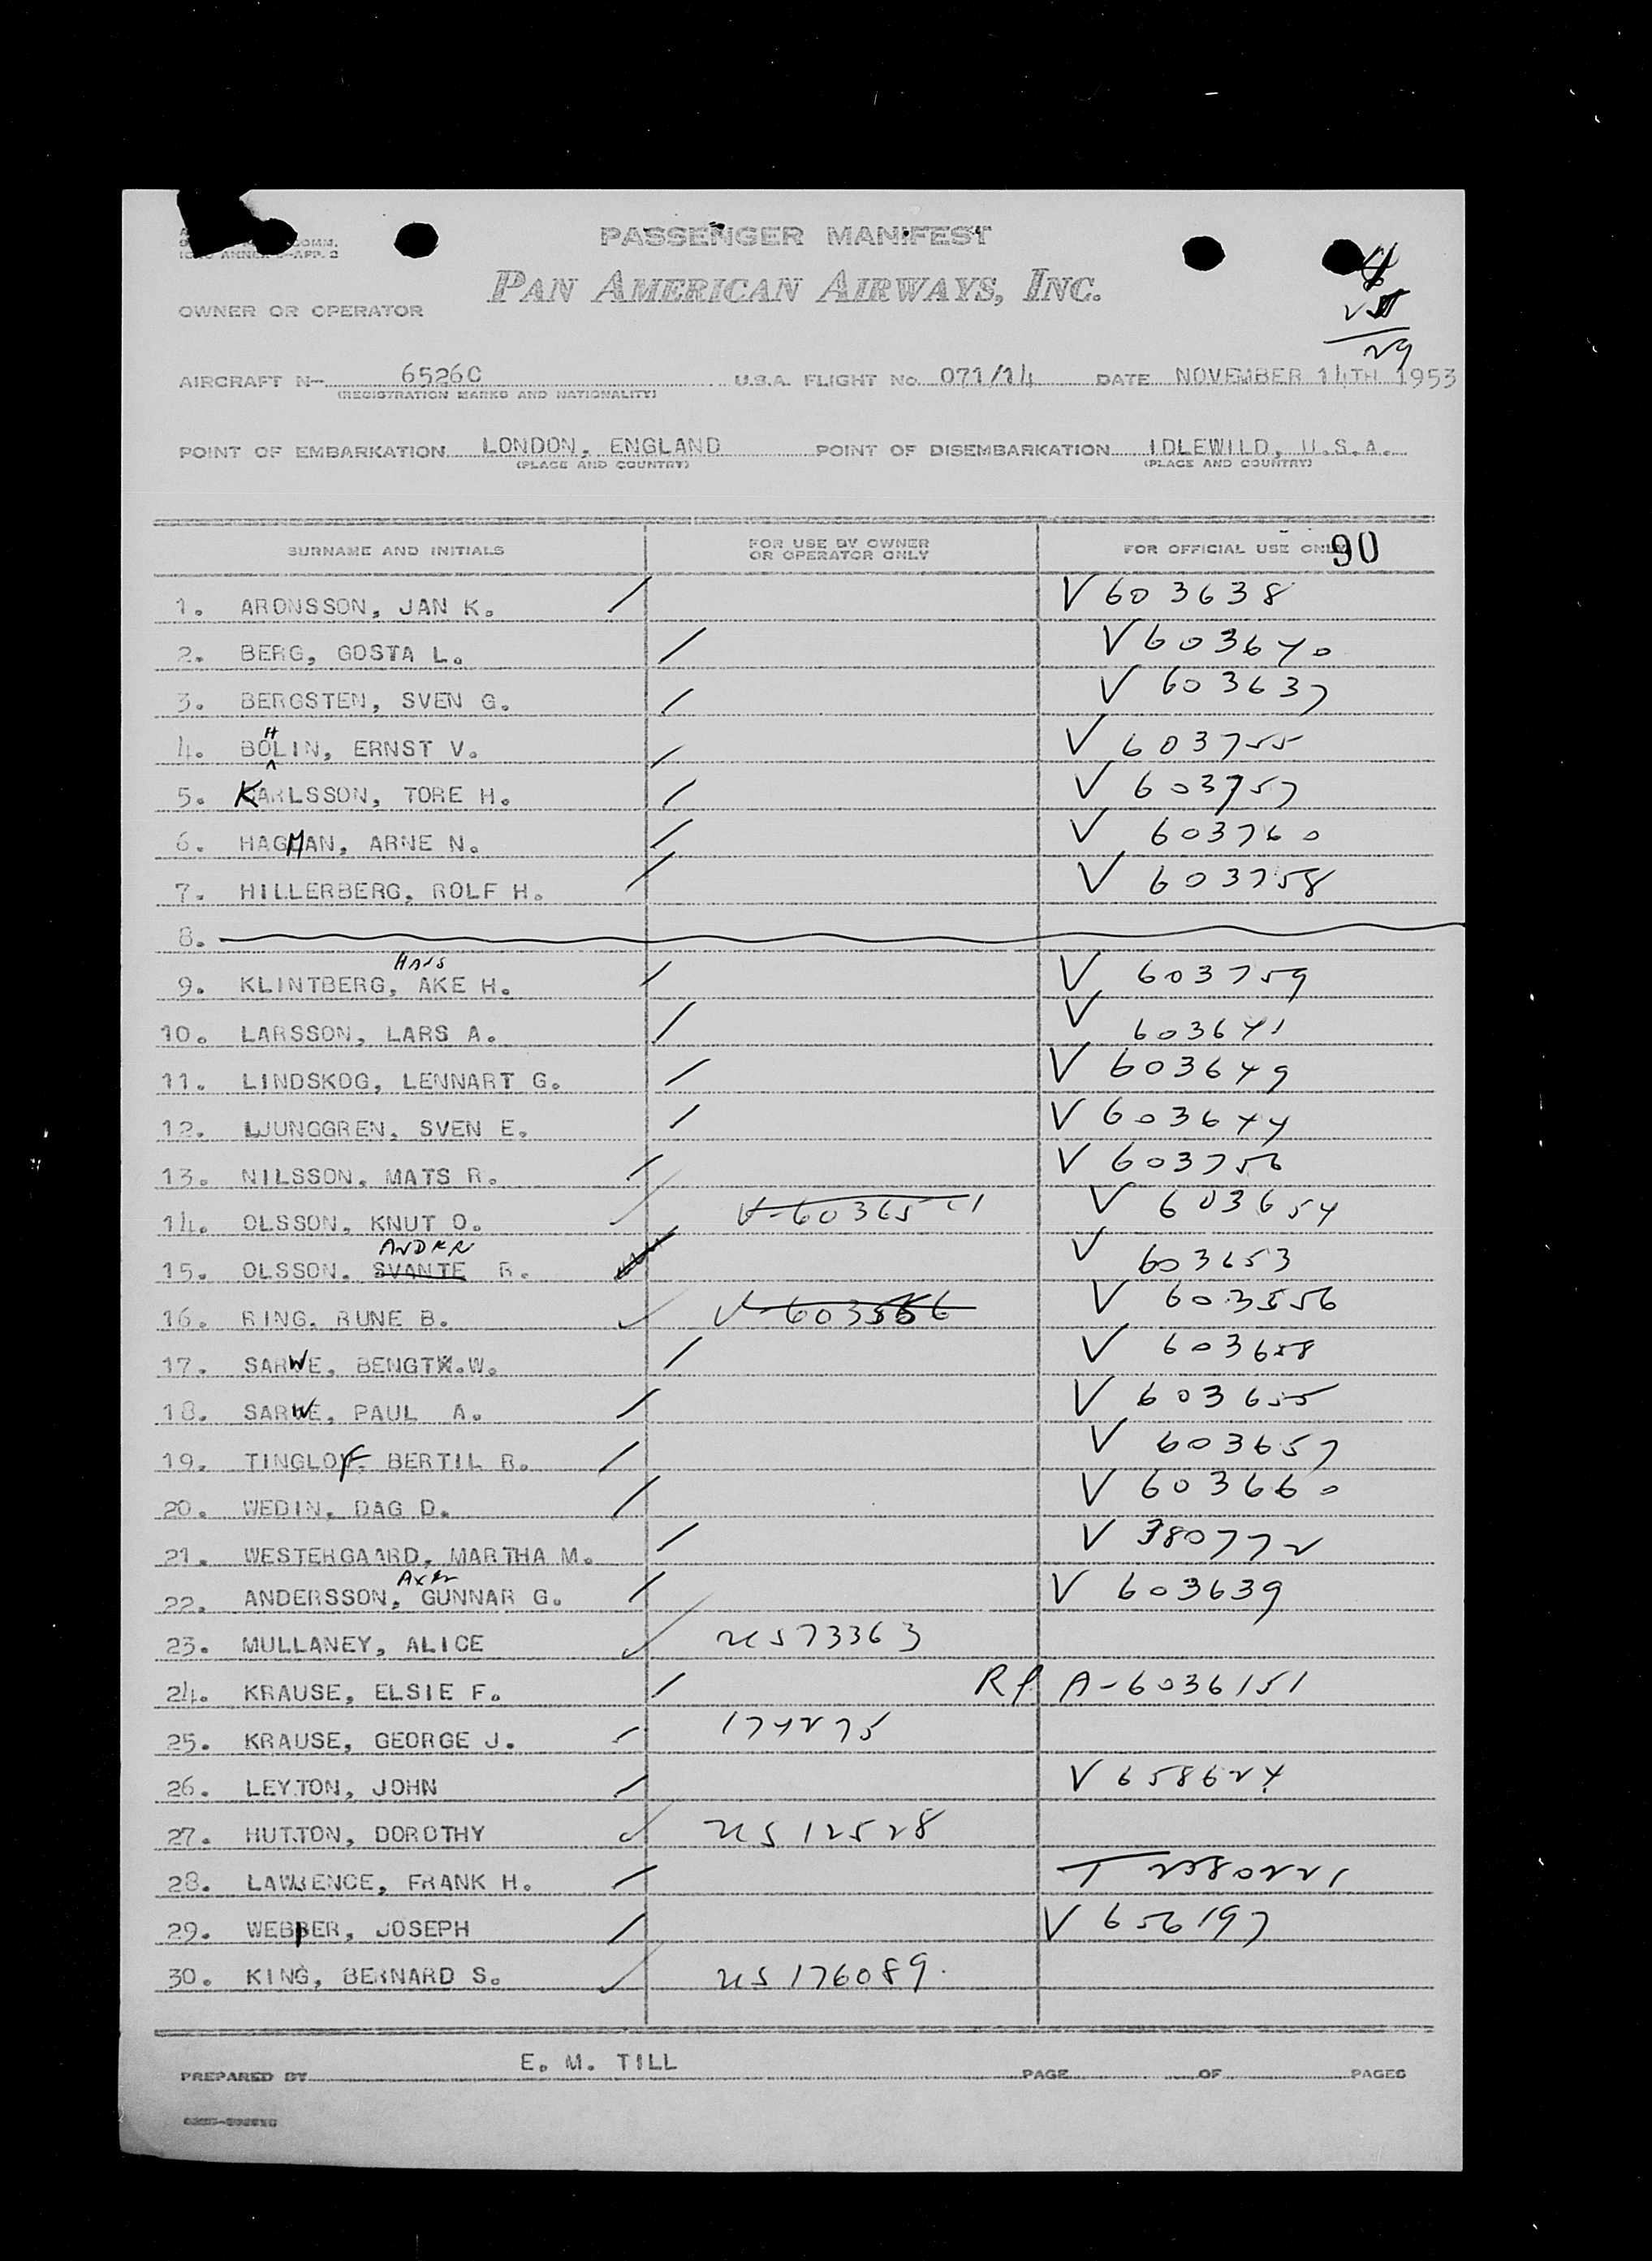 COMM.
ANNEX -APP. 2
PASSENGER MANIFEST
PAN AMERICAN AIRWAYS, INC.
OWNER OR OPERATOR
29
AIRCRAFT N- 6526C U.S.A. FLIGHT No. 071/14 DATE NOVEMBER 14TH 1953
(REGISTRATION MARKS AND NATIONALITY)
POINT OF EMBARKATION LONDON, ENGLAND POINT OF DISEMBARKATION IDLEWILD, U.S.A.
(PLACE AND COUNTRY) (PLACE AND COUNTRY)
SURNAME AND INITIALS FOR USE BY OWNER OR OPERATOR ONLY FOR OFFICIAL USE ONLY 90
1. ARONSSON, JAN K. / V 603638
2. BERG, GOSTA L. / V 603640
3. BERGSTEN, SVEN G. / V 603637
4. BOHLIN, ERNST V. / V 603755
5. KARLSSON, TORE H. / V 603757
6. HAGMAN, ARNE N. / V 603760
7. HILLERBERG, ROLF H. / V 603758
8.
HANS
9. KLINTBERG, AKE H. / V 603759
10. LARSSON, LARS A. / V 603641
11. LINDSKOG, LENNART G. / V 603649
12. LJUNGGREN, SVEN E. / V 603644
13. NILSSON, MATS R. / V 603756
14. OLSSON, KNUT O. ✓ V 603654
15. OLSSON, SVANTE R. V 603653
16. RING, RUNE B. ✓ V 603556
17. SARWE, BENGT W. / V 603658
18. SARWE, PAUL A. / V 603655
19. TINGLOF, BERTIL R. / V 603657
20. WEDIN, DAG D. / V 603660
21. WESTERGAARD, MARTHA M. / V 380772
22. ANDERSSON, GUNNAR G. / V 603639
23. MULLANEY, ALICE ✓ US 73363
24. KRAUSE, ELSIE F. / RP A-6036151
25. KRAUSE, GEORGE J. / 174275
26. LEYTON, JOHN / V 658624
27. HUTTON, DOROTHY ✓ US 12528
28. LAWRENCE, FRANK H. / T 2380221
29. WEBBER, JOSEPH / V 656197
30. KING, BERNARD S. ✓ US 176089.
PREPARED BY E. M. TILL PAGE OF PAGES